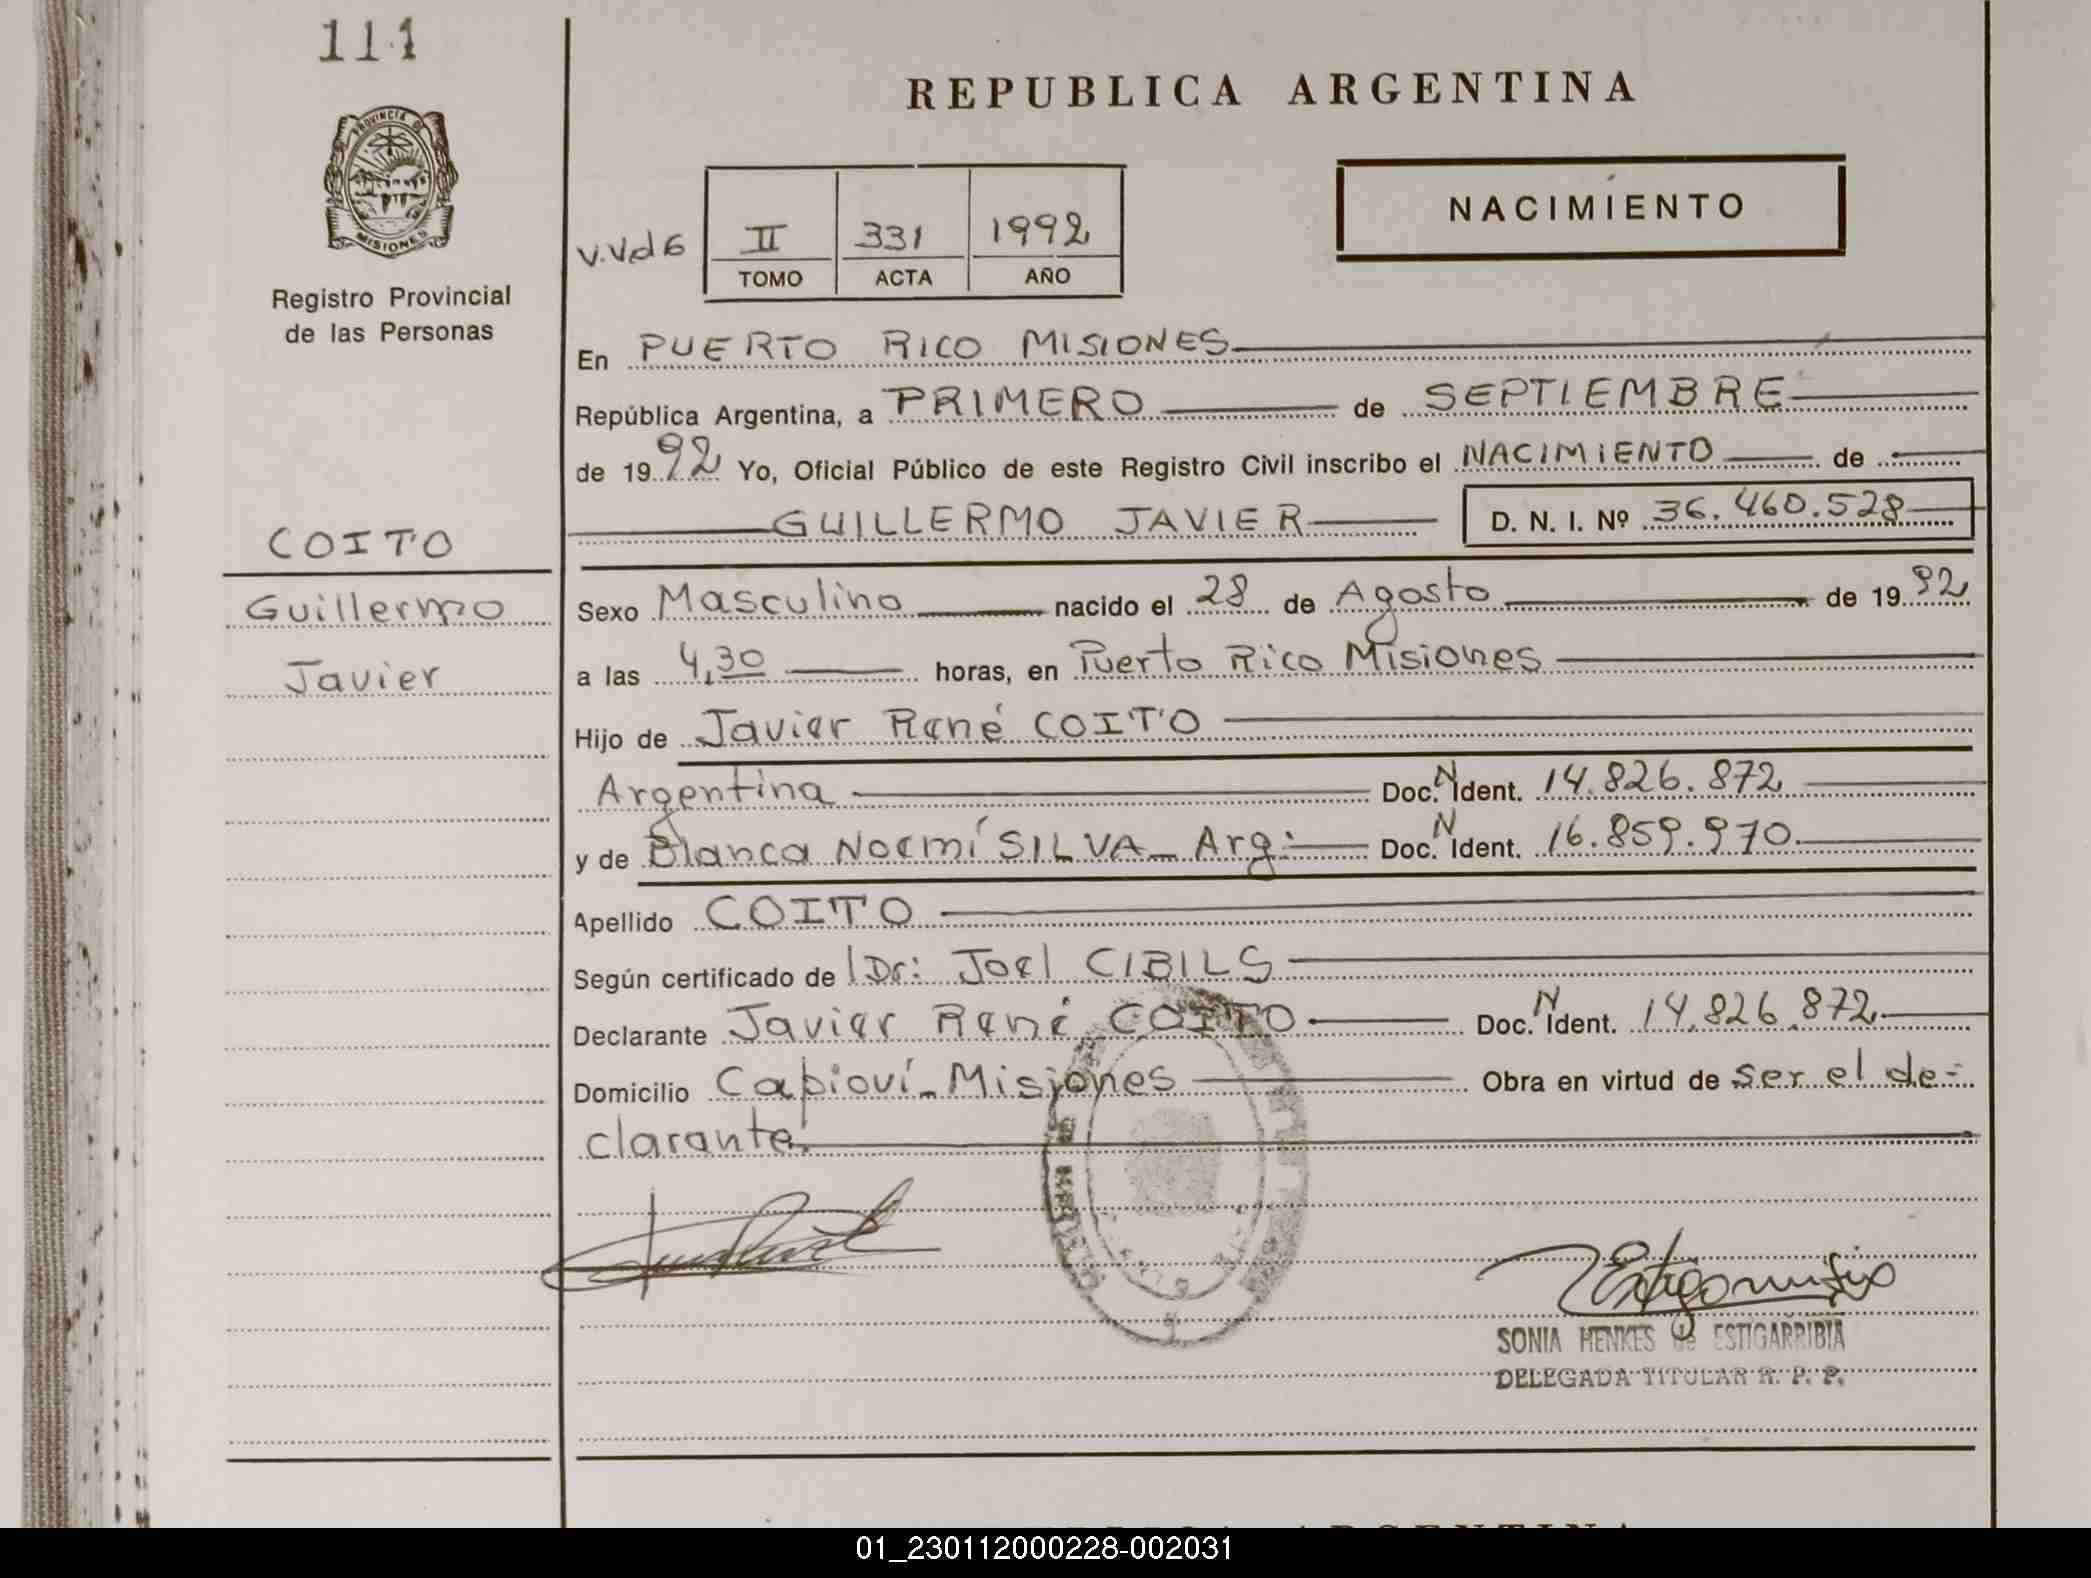 111
PROVINCIA DE
MISIONES
Registro Provincial
de las Personas
COITO
Guillermo
Javier
REPUBLICA ARGENTINA
NACIMIENTO
V.Vd6 II 331 1992
TOMO ACTA AÑO
En PUERTO RICO MISIONES
República Argentina, a PRIMERO de SEPTIEMBRE
de 1992 Yo, Oficial Público de este Registro Civil inscribo el NACIMIENTO de
GUILLERMO JAVIER D. N. I. Nº 36.460.528
Sexo Masculino nacido el 28 de Agosto de 1992
a las 4,30 horas, en Puerto Rico Misiones
Hijo de Javier René COITO
Argentina Doc. N Ident. 14.826.872
y de Blanca Noemí SILVA - Arg: Doc. N Ident. 16.859.970
Apellido COITO
Según certificado de Dr: Joel CIBILS
Declarante Javier René COITO Doc. N Ident. 14.826.872
Domicilio Capioví - Misiones Obra en virtud de ser el de-
clarante.
SONIA HENKES de ESTIGARRIBIA
DELEGADA TITULAR R. P. P.
01_230112000228-002031